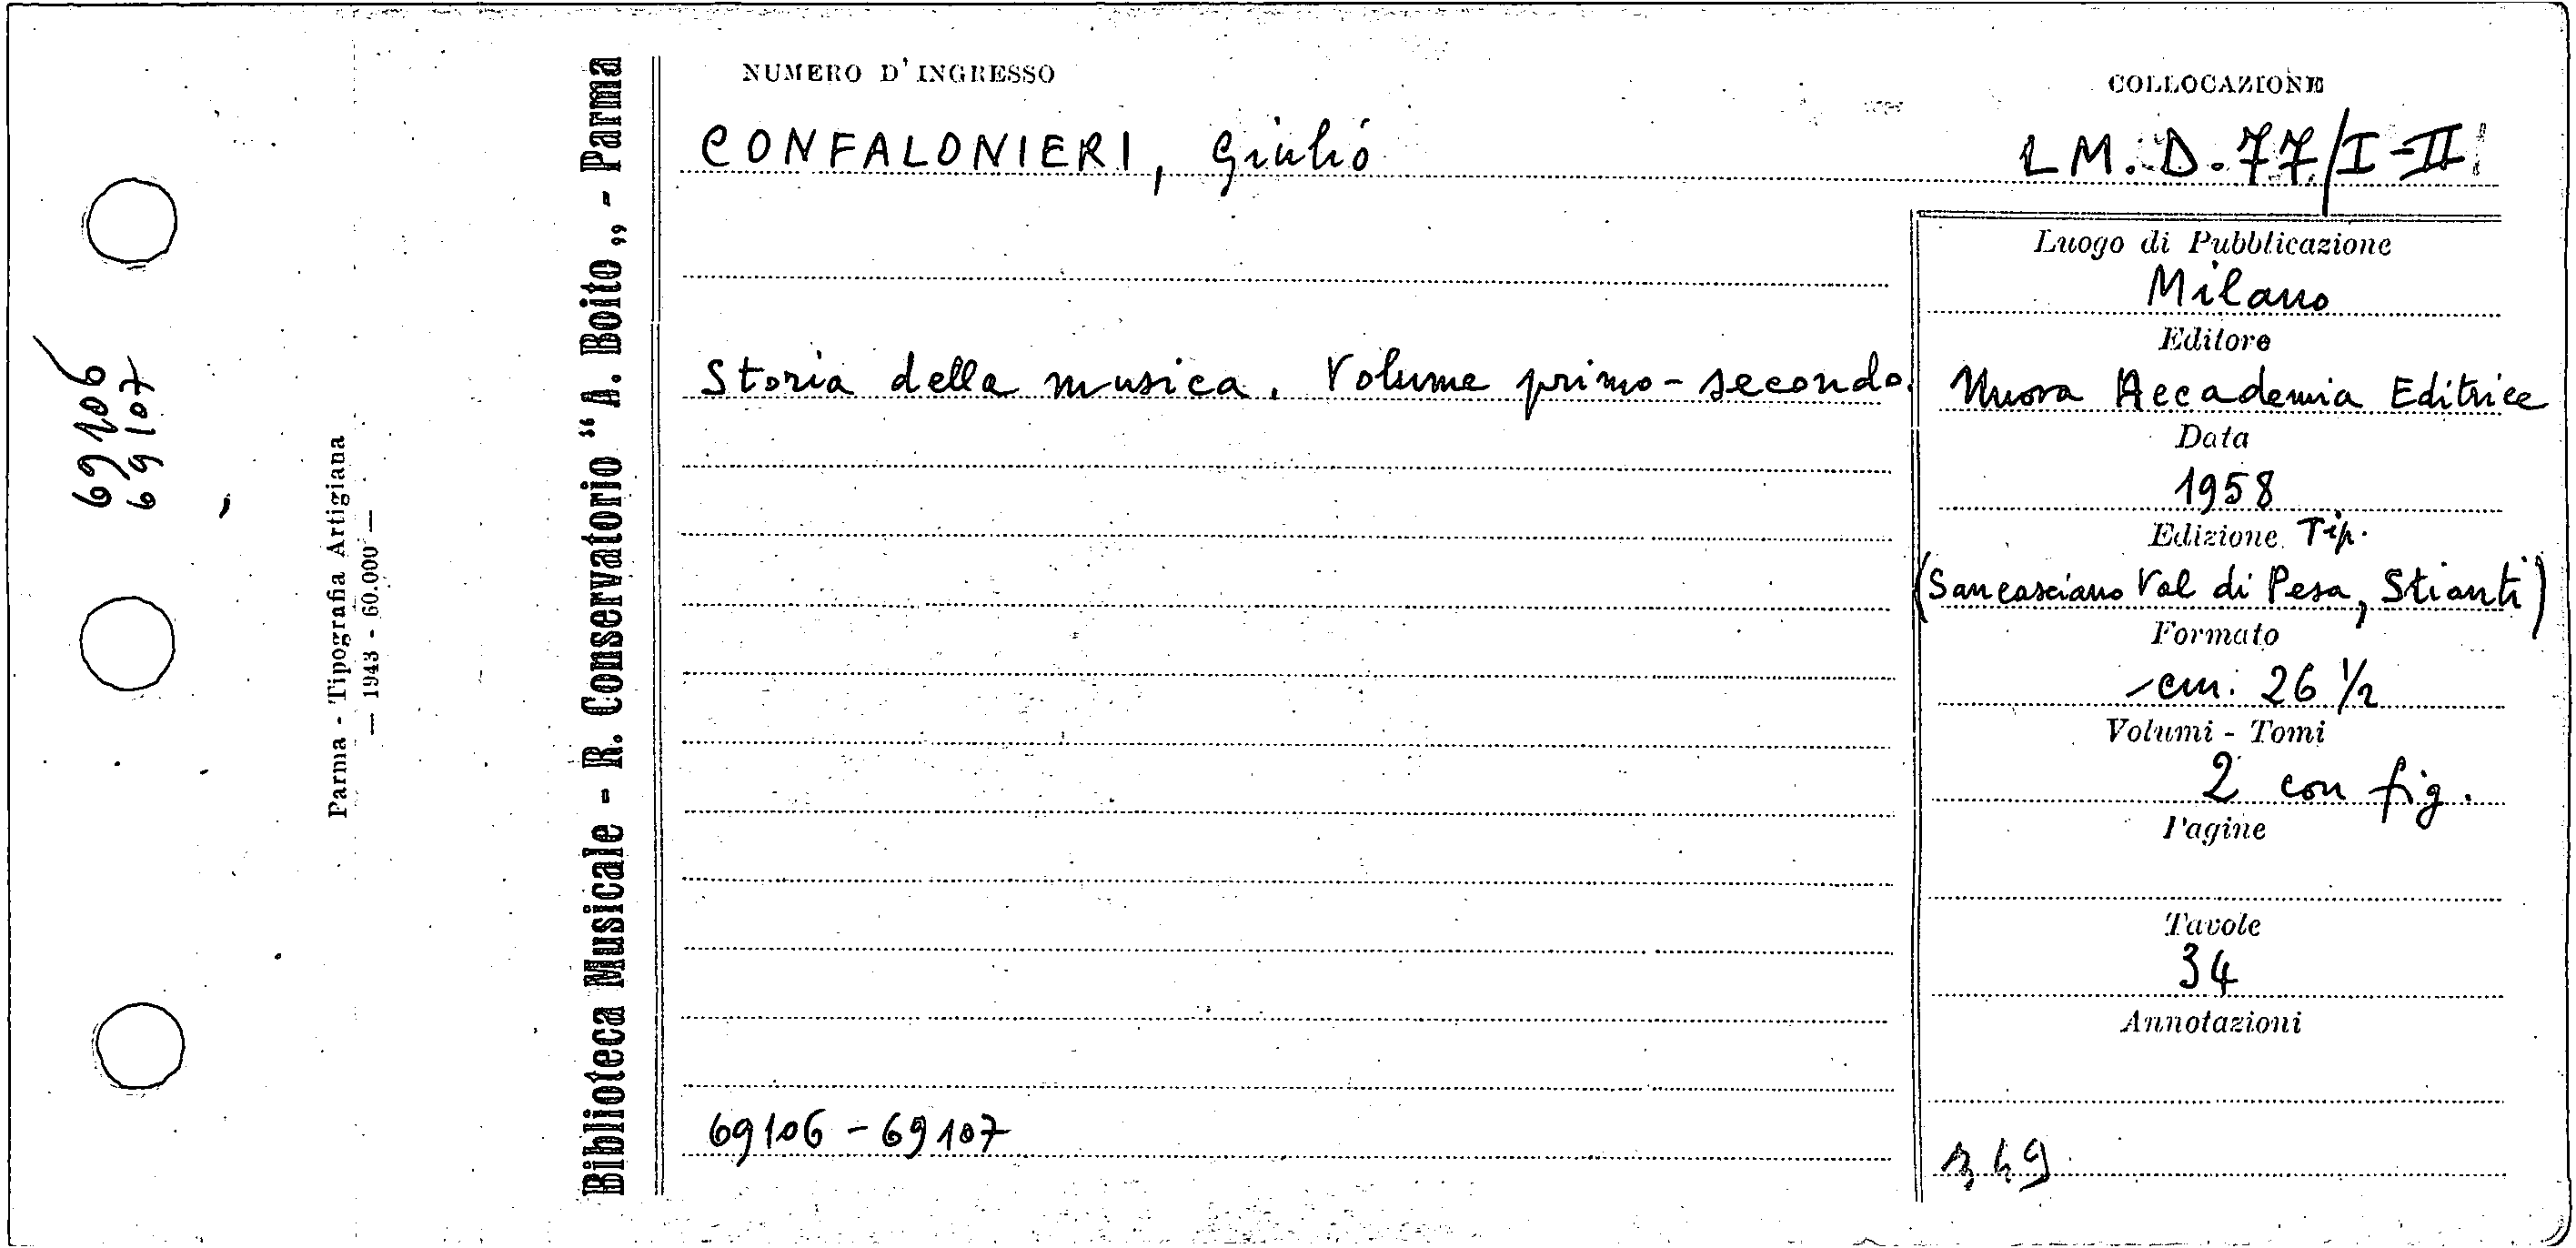 69106
69107
Parma - Tipografia Artigiana
— 1943 - 60.000 —
Biblioteca Musicale - R. Conservatorio “A. Boito„ - Parma
NUMERO D'INGRESSO
COLLOCAZIONE
CONFALONIERI, Giulio
LM.D.77/I-II
Luogo di Pubblicazione
Milano
Editore
Storia della musica. Volume primo-secondo.
Nuova Accademia Editrice
Data
1958
Edizione Tip.
(Sancasciano Val di Pesa, Stianti)
Formato
cm. 26 1/2
Volumi - Tomi
2 con fig.
Pagine
Tavole
34
Annotazioni
69106-69107